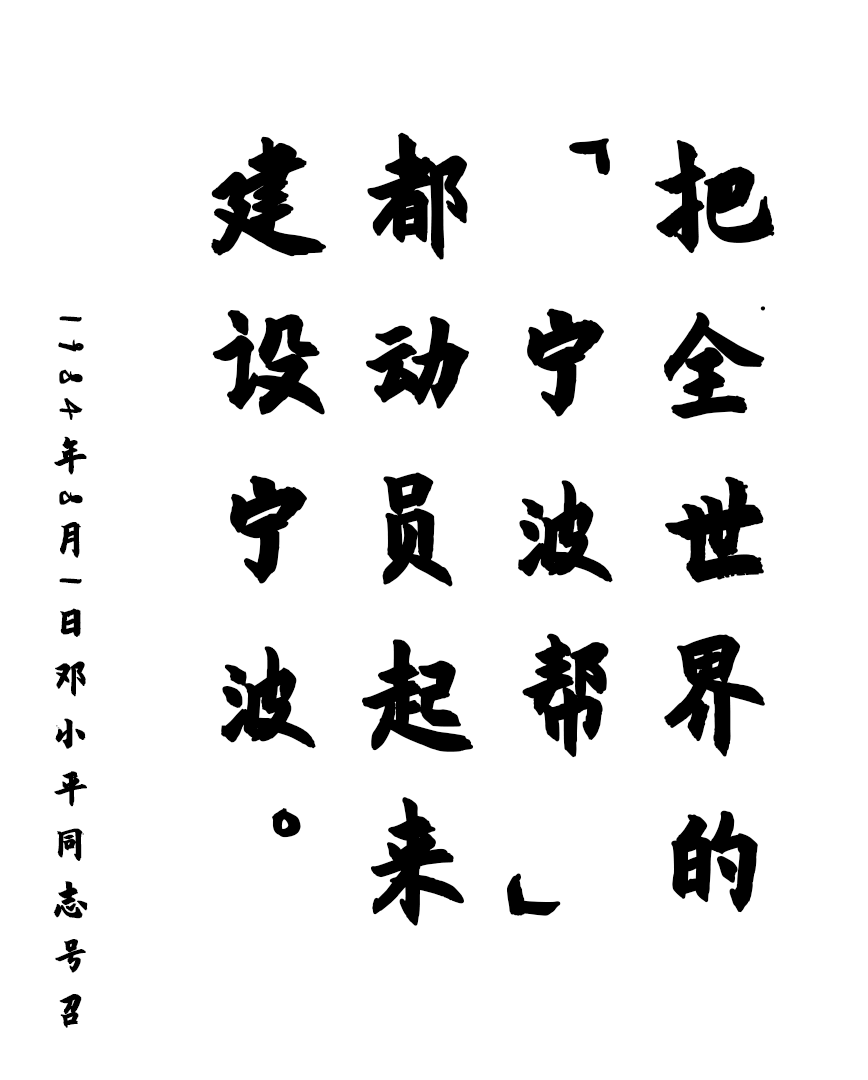 把全世界的
「宁波帮」
都动员起来
建设宁波。
1984年8月1日邓小平同志号召